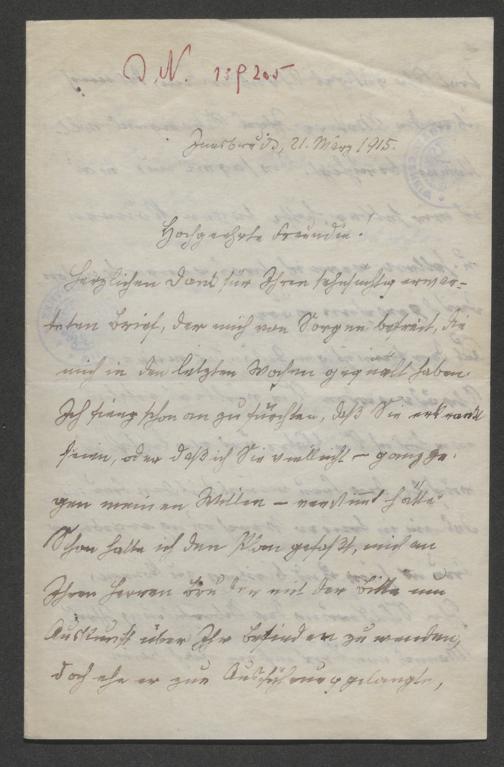 D. N. 13p205
Innsbruck, 21. März 1915.
Hochgeehrte Freundin!
Herzlichen Dank für Ihren sehnsüchtig erwar-
teten Brief, der mich von Sorgen befreit, die
mich in den letzten Wochen gequält haben.
Ich fieng schon an zu fürchten, daß Sie erkrankt
seien, oder daß ich Sie vielleicht – ganz ge-
gen meinen Willen – verstimmt hätte.
Schon hatte ich den Plan gefaßt, mich an
Ihren Herren Bruder mit der Bitte um
Auskunft über Ihr Befinden zu wenden,
doch ehe er zur Ausführung gelangte,